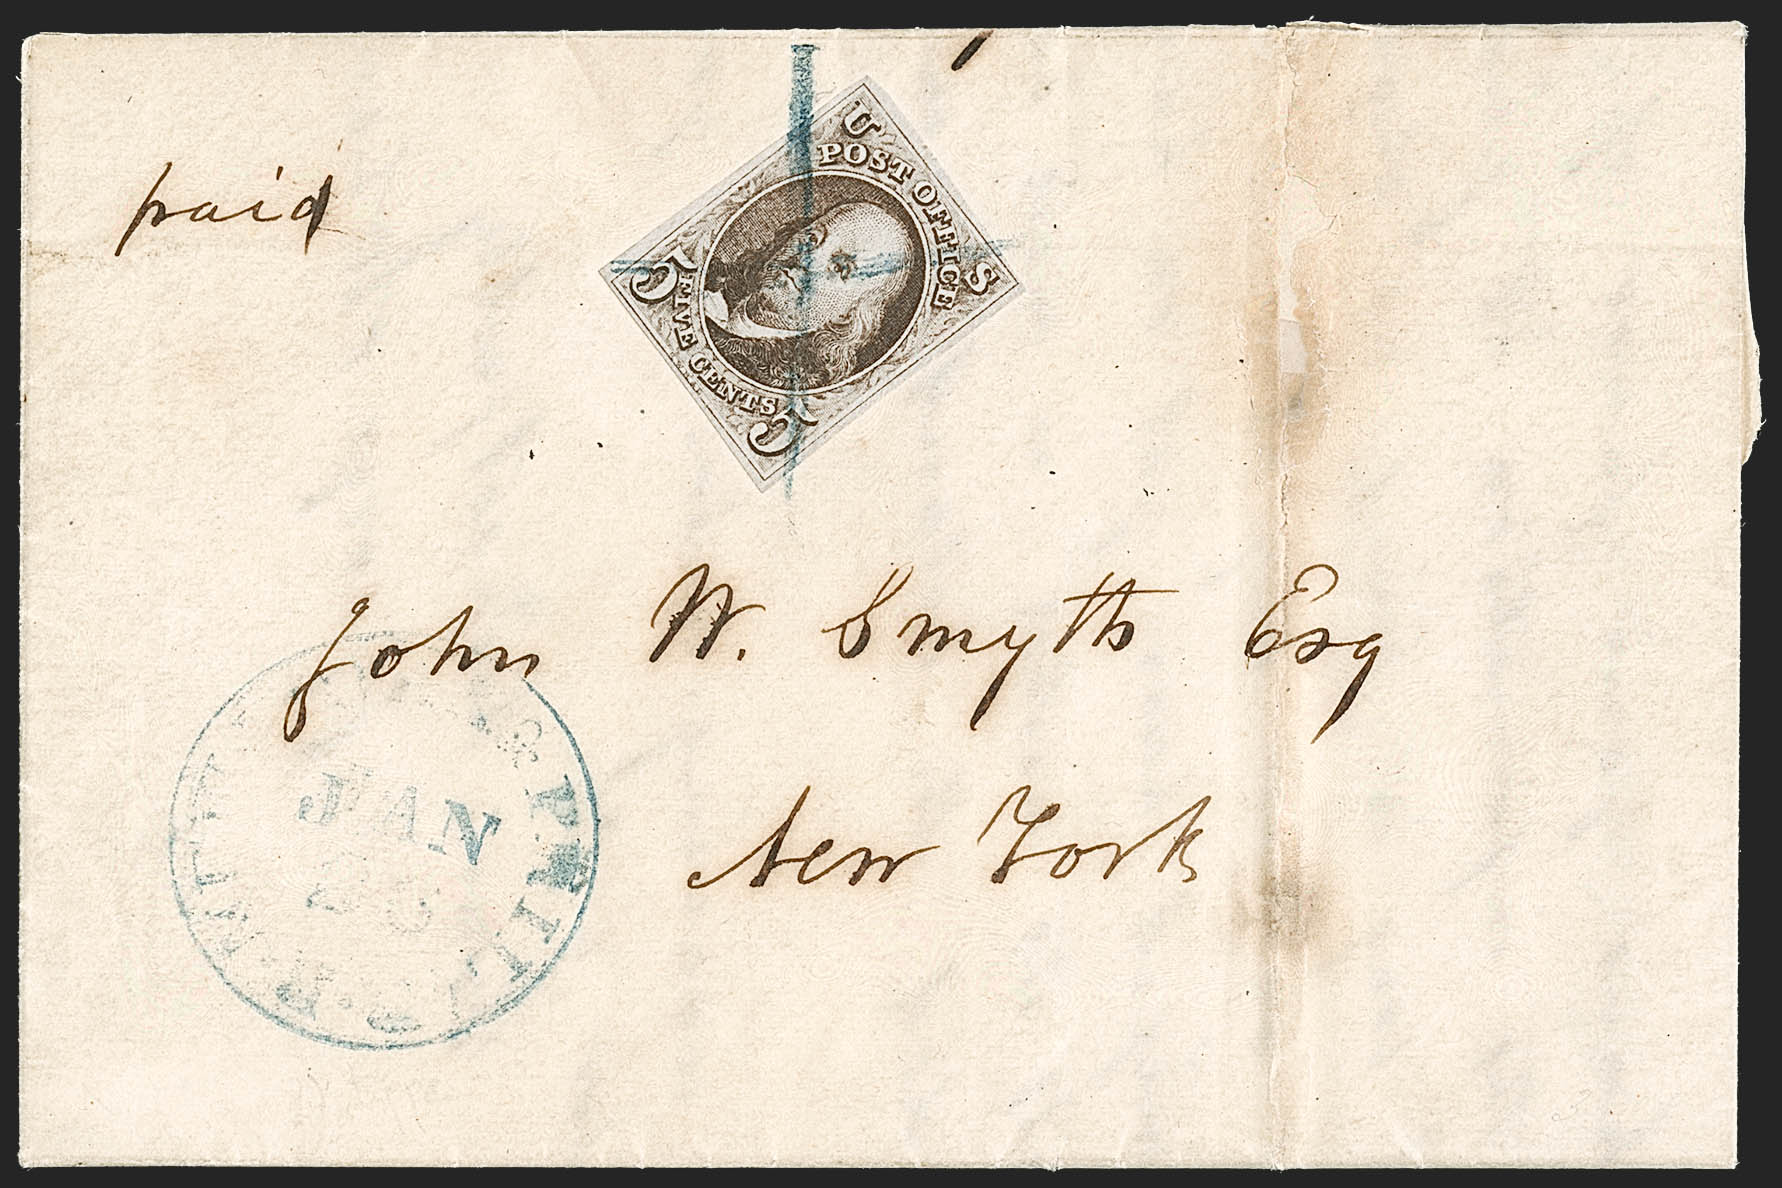 paid
U S
POST OFFICE
FIVE CENTS
5 5
John W. Smyth Esq
New York
& PHILA
JAN